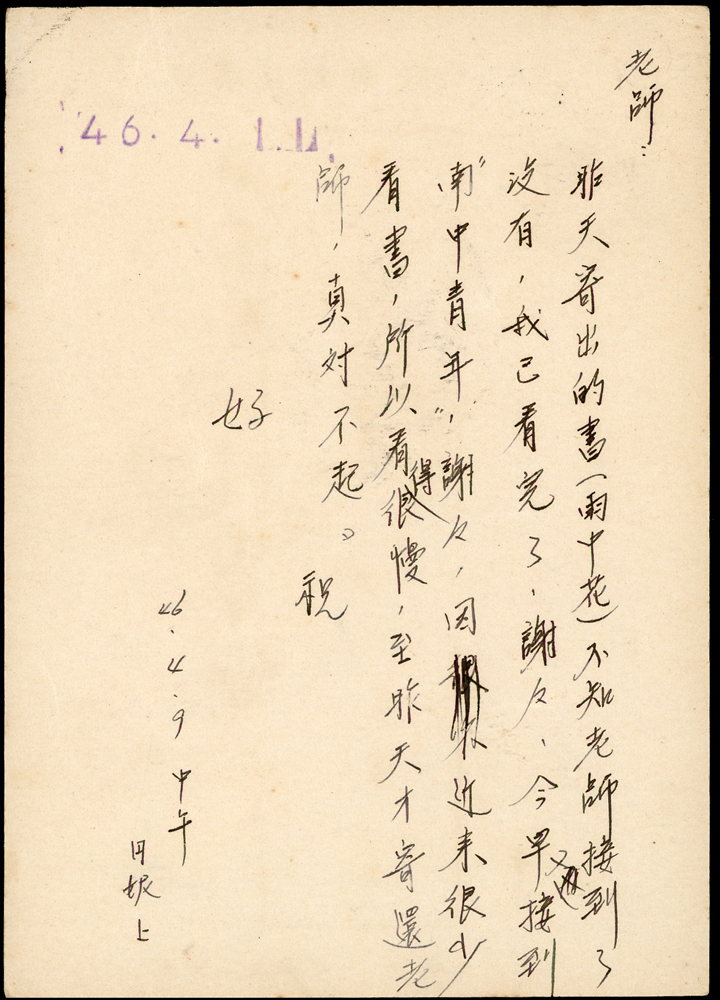 老師：
昨天寄出的書（雨中花）不知老師接到了
沒有，我已看完了，謝々、今早又接到
“南中青年”，謝々，因近來很少
看書，所以看得很慢，至昨天才寄還老
師，真對不起。祝
好
46.4.9中午
上
46.4.11